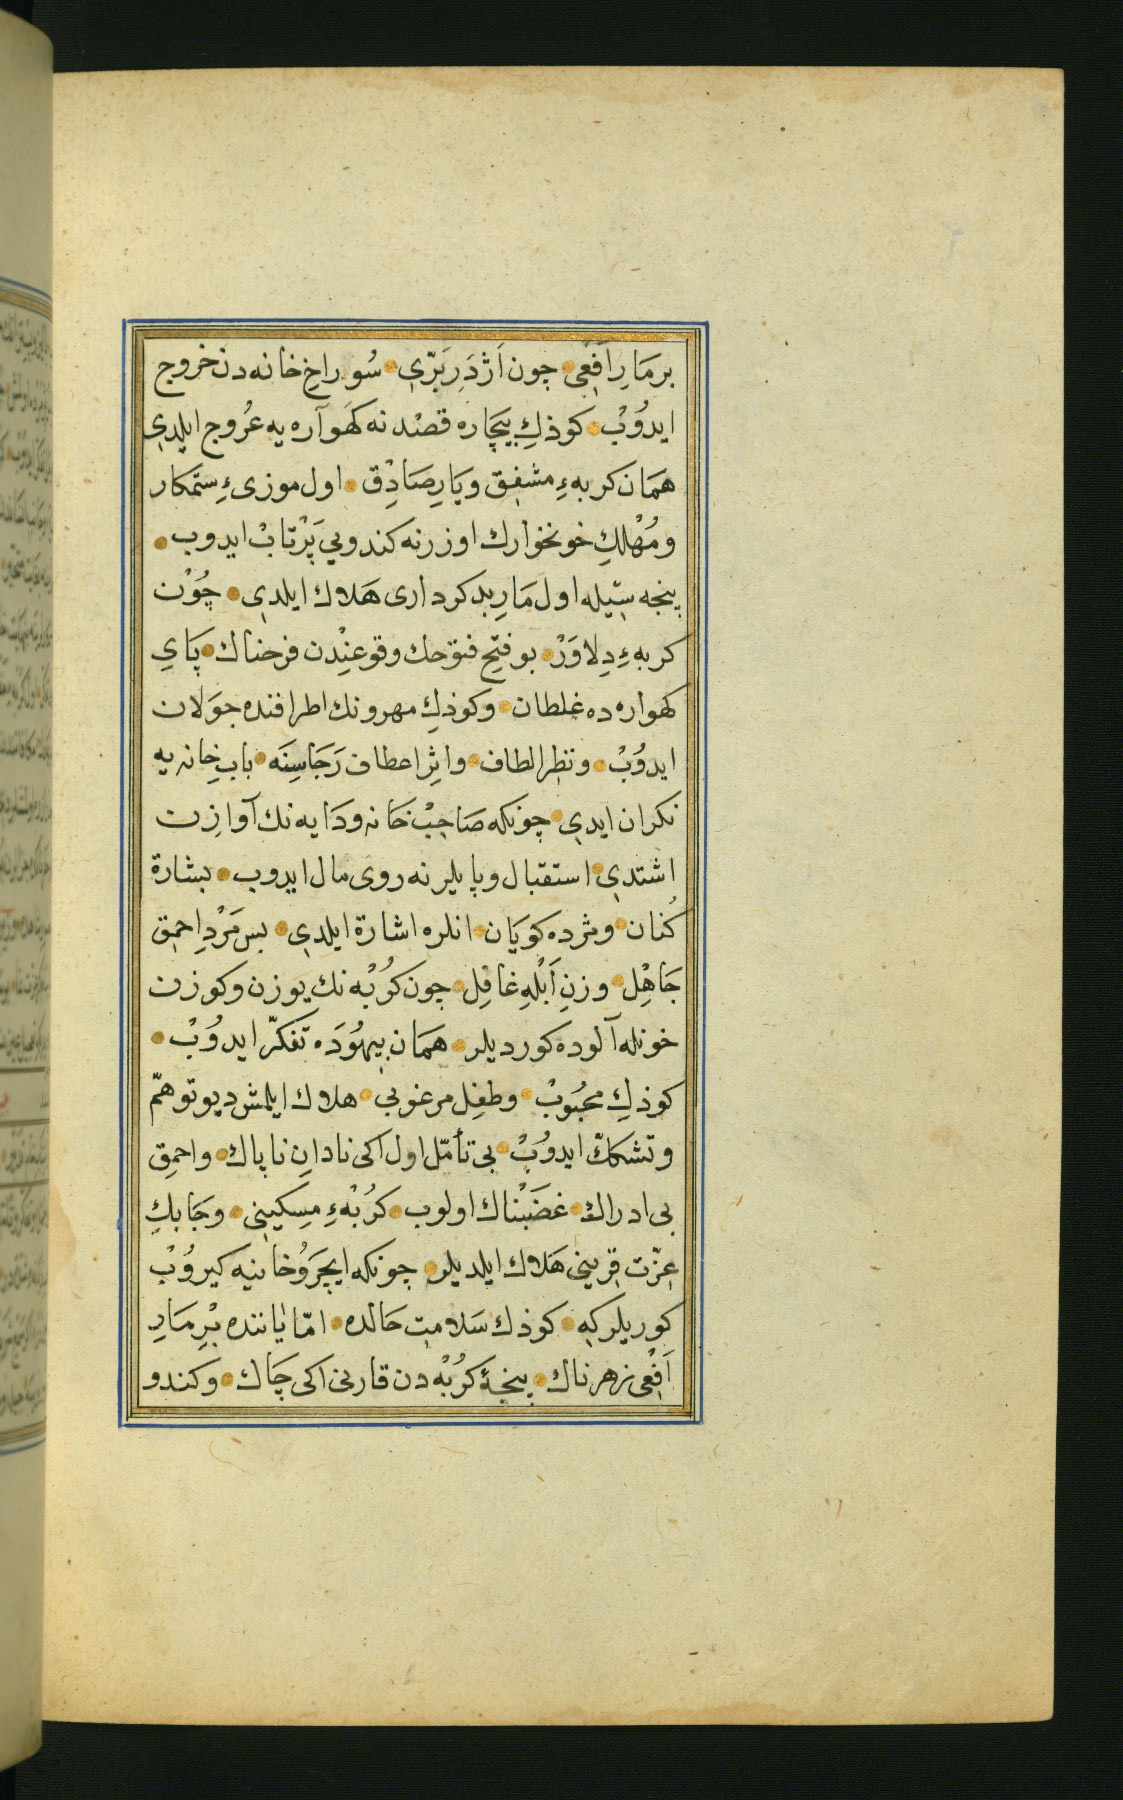 برمَارِ اَفِعِی چون اَژدَرِ بَرّی سُوراخِ خانه دن خروج
ایدُوبْ کوذكِ بیچاره قصْدنه کَهوآره یه عُروج ایلدی
هَمَان کربهءِ مشفِق ویَارِ صَادِق اول موزیءِ ستمکار
ومُهْلكِ خونخوارك اوزرنه کندویی پَرْتابْ ایدوب
پنجه سیّله اول مَارِ بدکرداری هَلاك ایلدی چُوْن
کربهءِ دِلاوَرْ بو فتحِ فتوحك وقوعنِدن فرحناك پَایِ
کهواره ده غلطان وکوذكِ مهرونك اطرافنده جوَلان
ایدُوبْ ونظرِ الطاف واثِرِ اعطاف رَجَاسِنَه بابِ خِانه یه
نکران ایدی چونکه صَاحِبْ خَانه ودَایه نك آوازِن
اشتدی استقبال وپایلرنه روی مال ایدوب بشارة
کُنان ومژده کویَان انلره اشارة ایلدی بس مَرْدِ احمِق
جَاهِل وزنِ اَبْلَهِ غافِل چون کُرْبه نك یوزن وکوزن
خونله آلوده کوردیلر هَمَان بیهُوَده تفکرّ ایدوُبْ
کوذكِ محبُوبْ وطفِل مرغوبی هلاك ایلمش دیو توهّم
وتشکكّ ایدوُبْ بی تأمّل اول اکی نادانِ ناپاك واحمِق
بی ادراك غضَبْناك اولوب کُرْبْهءِ مِسِکینِی وجَابكِ
عِزّت قرِینی هَلاك ایلدیلر چونکه ایچرَوُ خَانیه کیروُبْ
کوریلر که کوذك سَلامِت حَالده امّا یَاننده بْرِ مَارِ
اَفِعْی زهرناك پنجهٔ کُرْبْه دن قارنی اکی چَاك وکندو